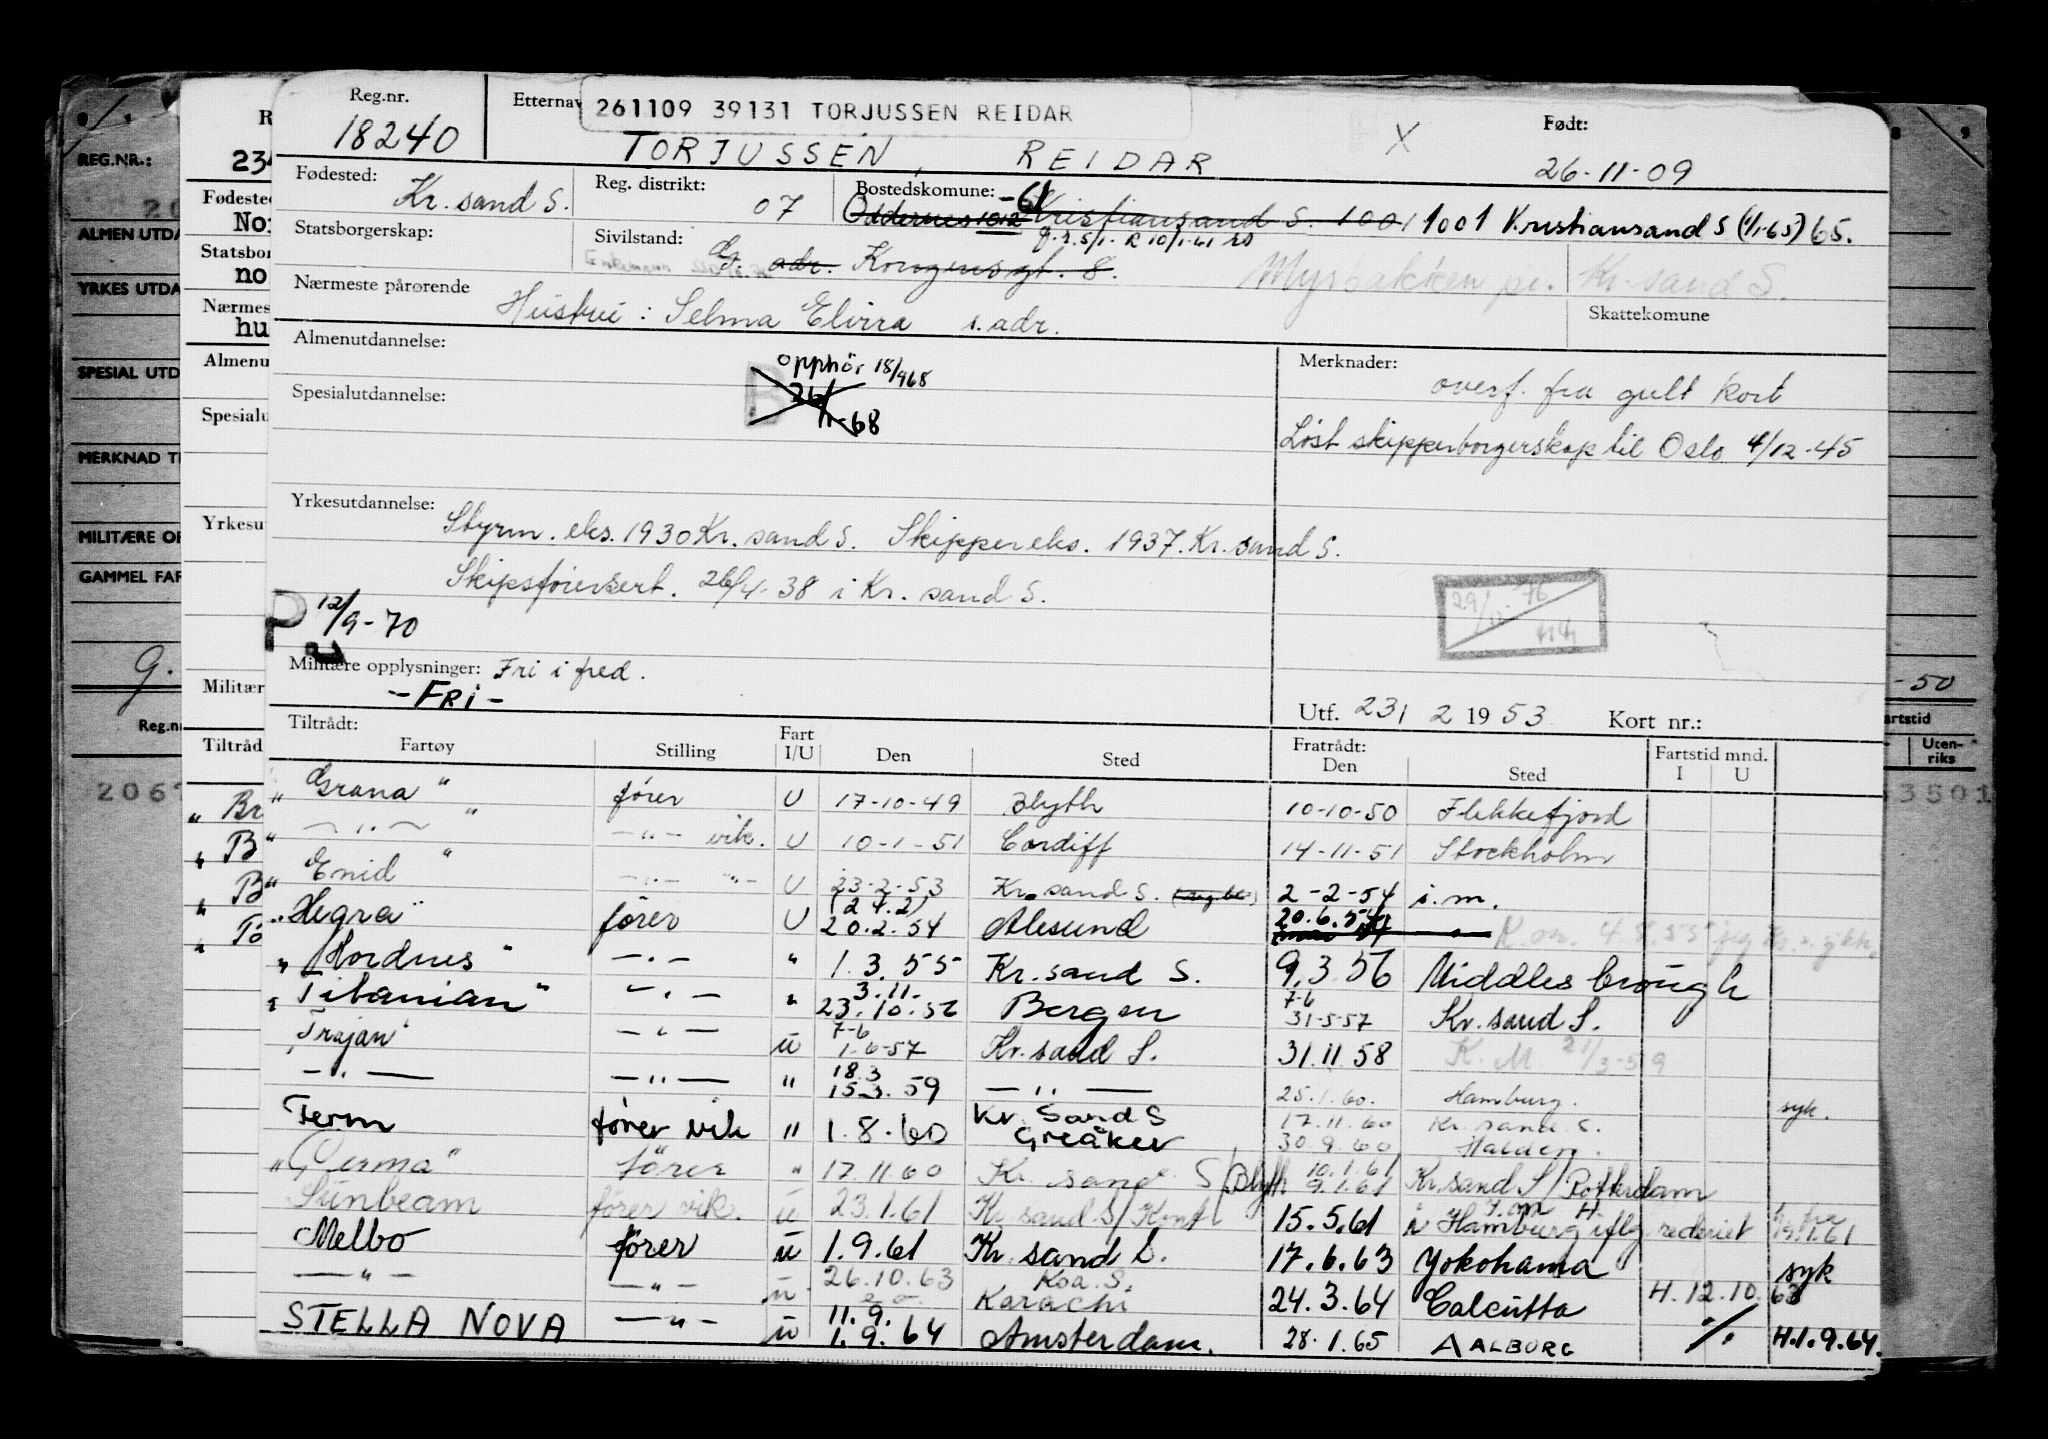 Reg.nr. 18240
Etternav
261109 39131 TORJUSSEN REIDAR
TORJUSSEN, REIDAR
X
Født: 26-11-09
Fødested: Kr. sand S.
Reg. distrikt: 07
Bostedskomune: -61
Oddernes 1012 Kristiansand S. 1001 1001 Kristiansand S (1/1-65) 65.
Statsborgerskap:
Sivilstand: G. adr. Kongensgt. 8.
Myrbakken pr. Kr. sand S.
Nærmeste pårørende
Hustru: Selma Elvira s. adr.
Skattekomune
Almenutdannelse:
Opphör 18/968
26/11-68
Spesialutdannelse:
Merknader: overf. fra gult kort
Löst skipperborgerskap til Oslo 4/12-45
Yrkesutdannelse: Styrm. eks. 1930 Kr. sand S. Skippereks. 1937. Kr. sand S.
Skipsförersert. 26/4-38 i Kr. sand S.
P 12/9-70
29/ 76
Militære opplysninger: Fri i fred.
-FRI-
Utf. 23/ 2 1953 Kort nr.:
Tiltrådt:
Fartøy Stilling Fart I/U Den Sted Fratrådt: Den Sted Fartstid mnd. I U
"Grana" förer U 17-10-49 Blyth 10-10-50 Flekkefjord
— " — " — " — vik. U 10-1-51 Cardiff 14-11-51 Stockholm
"Enid" — " — " — U 23-2-53 Kr. sand S. 2-2-54 i.m.
(24.2)
"Hegra" förer U 20.2.54 Ålesund 20.6.54
"Hordnes" — " — " 1.3.55 Kr. sand S. 9.3.56 Middlesbrough
3.11. 7-6
"Titanian" — " — " 23.10.56 Bergen 31-5-57 Kr. sand S.
7-6
"Trajan" — " — u 1-6-57 Kr. sand S. 31.11.58 K. M 21/3-59
18.3
— " — — " — " 15.3.59 — " — 25.1.60. Hamburg. syk.
Kr. Sand S 17.11.60 Kr. sand S.
Term förer vik " 1.8.60 Greåker 30.9.60 Halden.
10.1.61
"Germa" förer " 17.11.60 Kr. sand S/Blyth 9.1.61 Kr. sand S/Rotterdam
Sunbeam förer vik. u 23.1.61 Kr. sand S/ 15.5.61 i Hamburg iflg. rederiet 19.1.61
Melbo förer u 1.9.61 Kr. sand S. 17.6.63 Yokohama syk
— " — — " — u 26.10.63 Koa. S. Karachi 24.3.64 Calcutta H. 12.10.63
11.9.
STELLA NOVA — " — u 1.9.64 Amsterdam. 28.1.65 AALBORG ./. H.1.9.64.
REG.NR.:
ALMEN UTDA
YRKES UTDA
SPESIAL UTD
MERKNAD T
MILITÆRE OP
GAMMEL FAR
G.
Reg.n
2067
R
234
Fødeste
No
Statsbor
no
Nærmes
hu
Almenu
Spesialu
Yrkesu
Militær
Tiltråd
"Br
"B
"B
"To
8 9
-50
artstid
Uten-
riks
3501